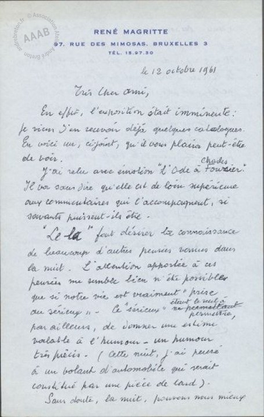 AAAB
RENÉ MAGRITTE
97, RUE DES MIMOSAS, BRUXELLES 3
TÉL. 15.97.30
le 12 octobre 1961
Très Cher ami,
En effet, l'exposition était imminente :
je viens d'en recevoir déjà quelques catalogues.
En voici un, ci-joint, qu'il vous plaira peut-être
de voir.
J'ai relu avec émotion "l'Ode à Charles Fourier"
Il va sans dire qu'elle est de loin supérieure
aux commentaires qui l'accompagnent, si
savants puissent-ils être.
"Le la" fait désirer la connaissance
de beaucoup d'autres pensées venues dans
la nuit. L'attention apportée à ces
pensées me semble bien n'être possible
que si notre vie est vraiment "prise
au sérieux" – Le "sérieux"
permettre,
par ailleurs, de donner une estime
valable à l'humour – un humour
très précis. (Cette nuit, j'ai pensé
à un volant d'automobile qui serait
constitué par une pièce de lard).
Sans doute, la nuit, pouvons nous mieux